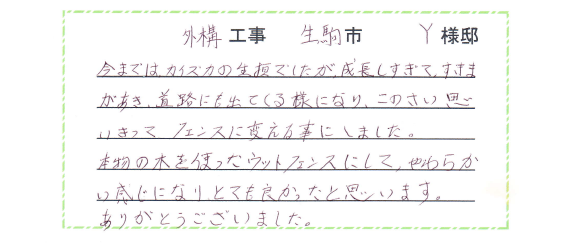 外構 工事 生駒市 Y 様邸
今までは、カイズカの生垣でしたが、成長しすぎて、すきま
があき、道路にも出てくる様になり、このさい思
いきって フェンスに変える事にしました。
本物の木を使ったウットフェンスにして、やわらか
い感じになり、とても良かったと思います。
ありがとうございました。